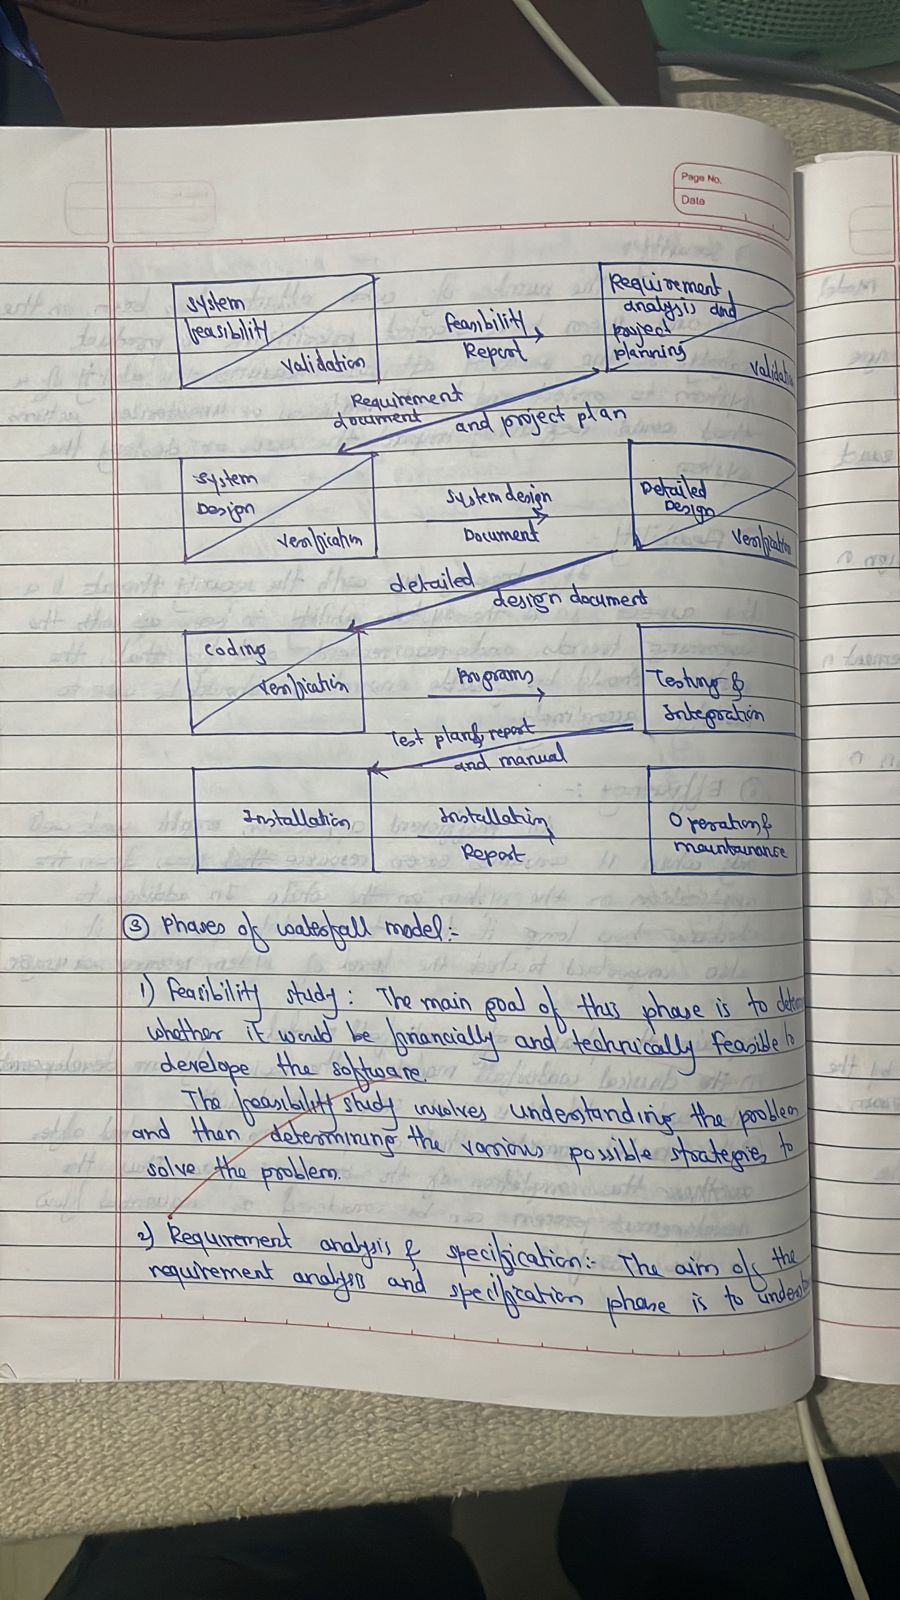 Page No.
Date
System
feasibility
Validation
feasibility
Report
Requirement
analysis and
project
planning
Requirement
document
and project plan
System
Design
Verification
System design
Document
Detailed
Design
Verification
detailed
design document
Coding
Verification
Programs
Testing &
Integration
Test plan & report
and manual
Installation
Installation
Report
Operation &
maintainance
③ Phases of waterfall model:-
1) Feasibility study: The main goal of this phase is to
whether it would be financially and technically feasible to
develope the software.
The feasibility study involves understanding the problem
and then determining the various possible strategies to
solve the problem.
2) Requirement analysis & specification:- The aim of the
requirement analysis and specification phase is to